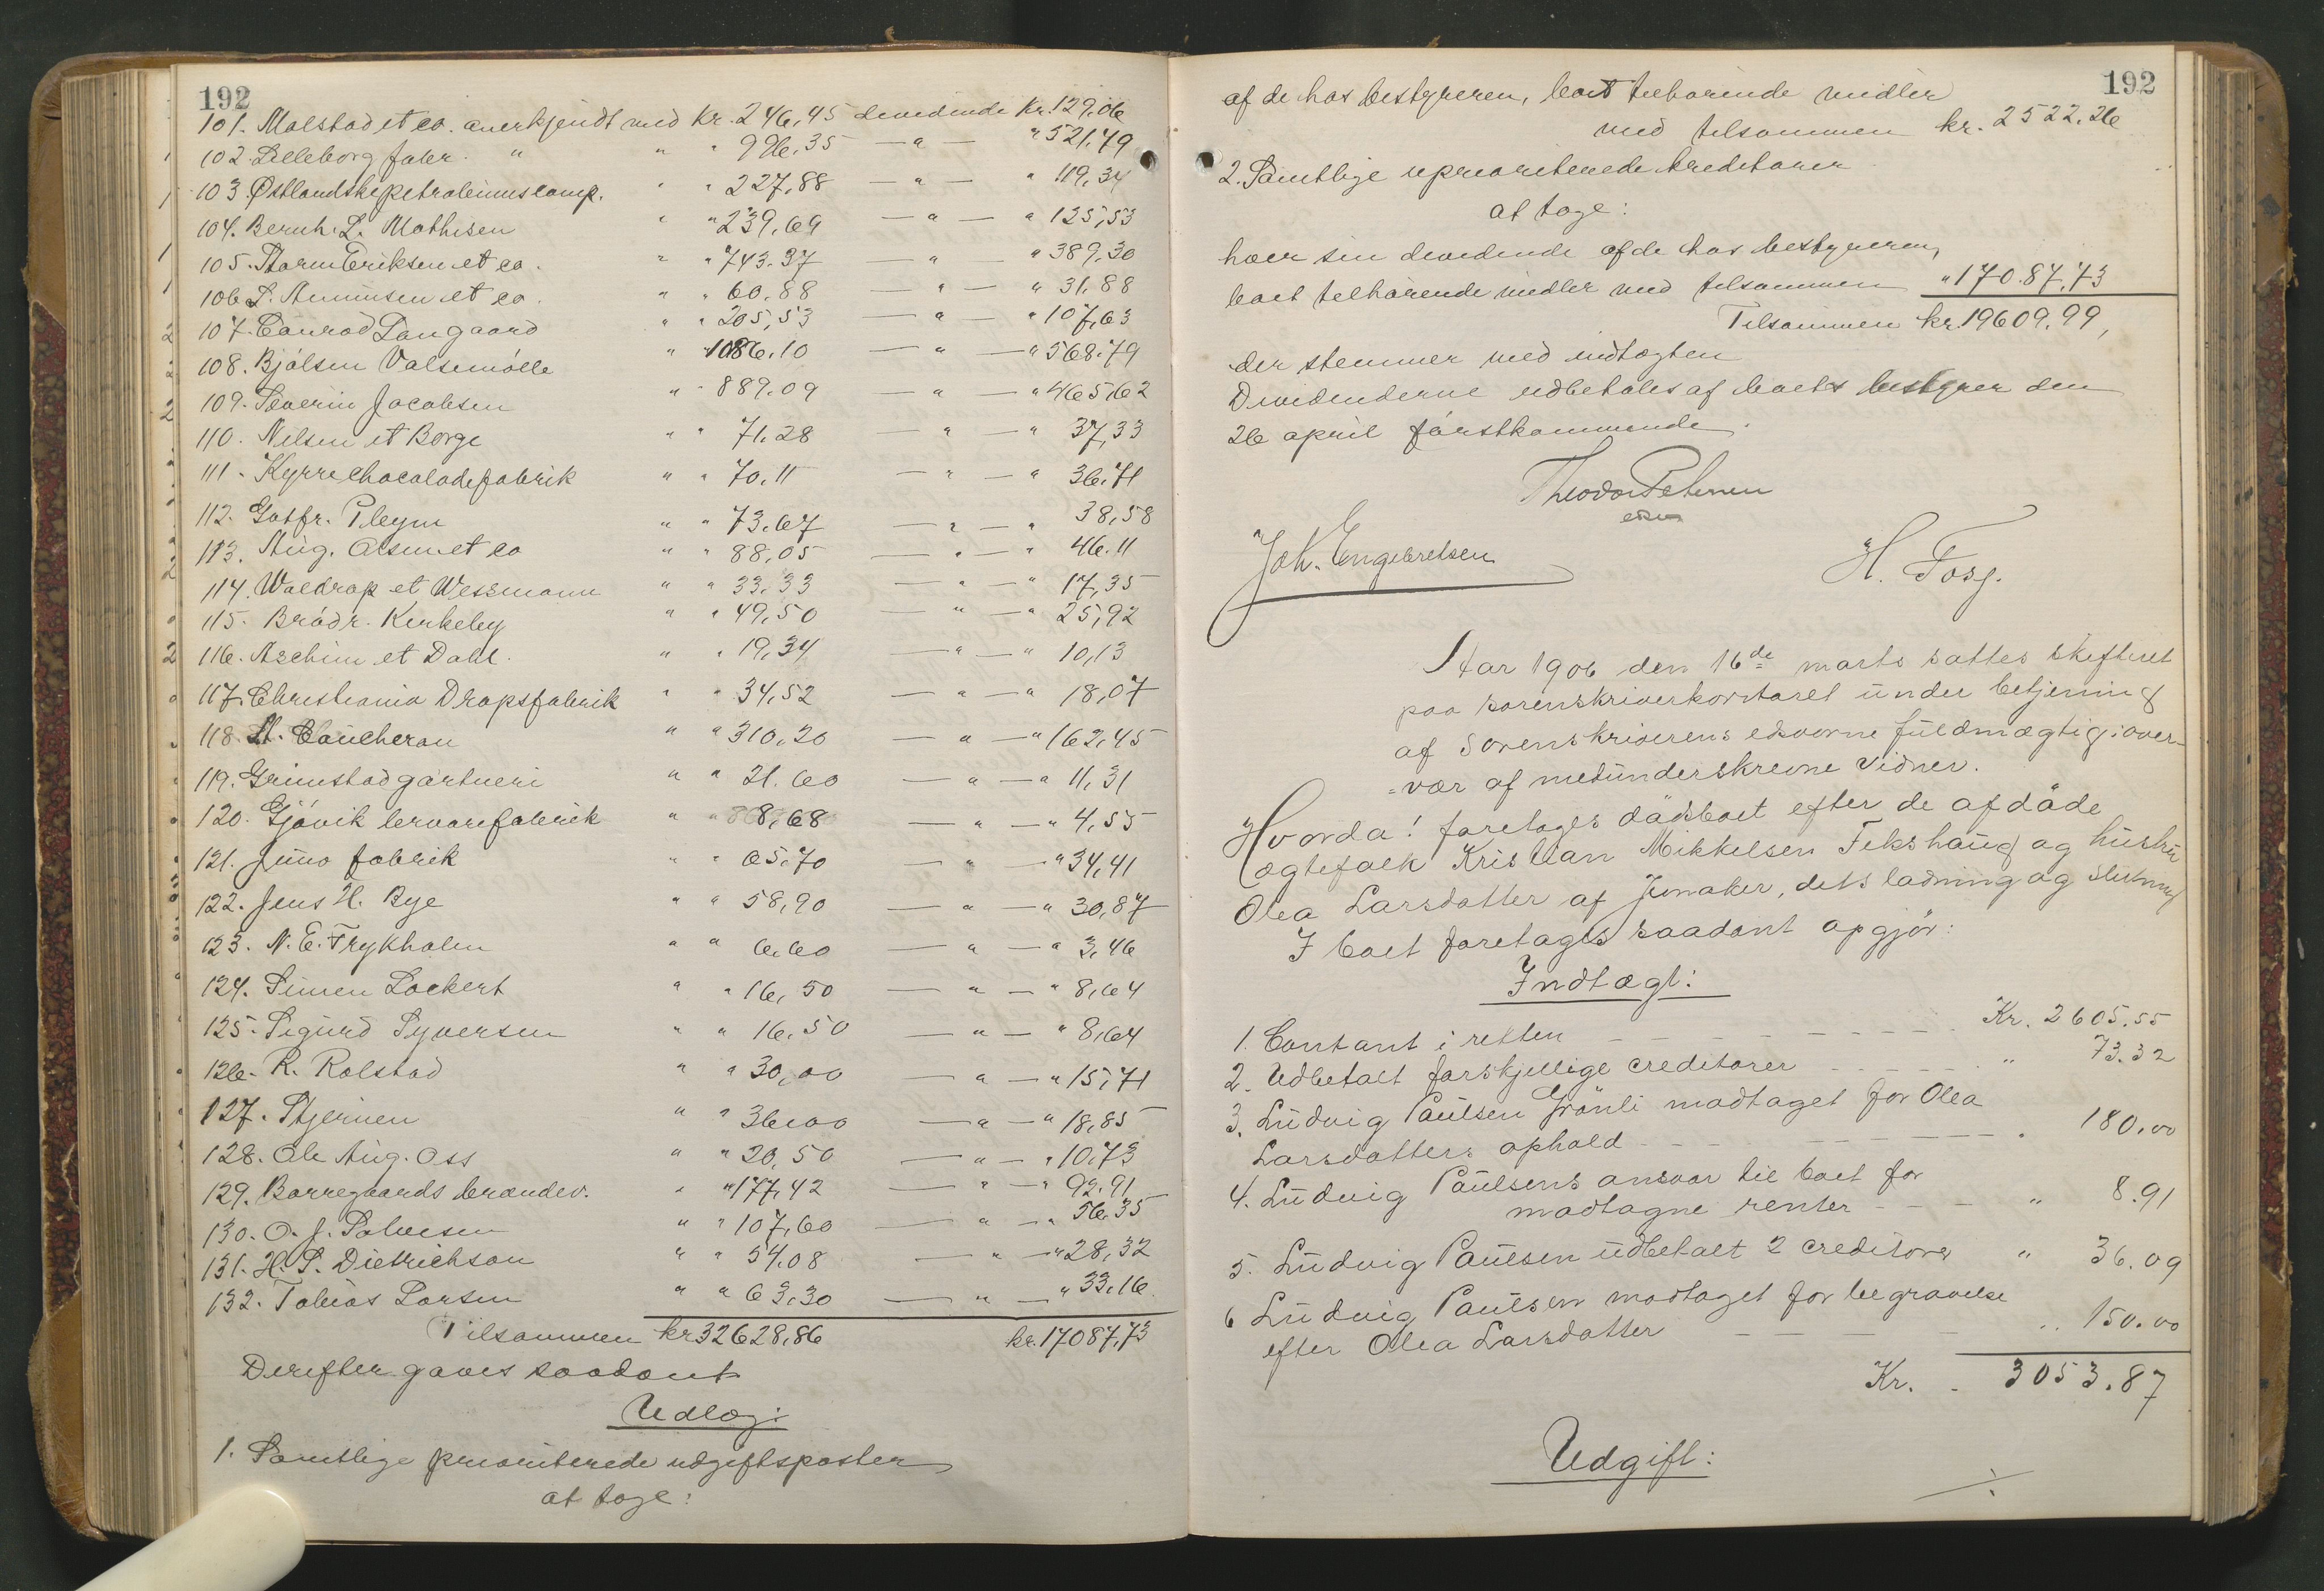 192
101. Malstad et co. anerkjendt med kr. 246,45 devedende kr. 129,06
102. Lilleborg fabr. " " " 996,35 — " — " 521,79
103. Østlandske petroleumscomp. " " 227,88 — " — " 119,34
104. Bernh. L. Mathisen " " 239,69 — " — " 125,53
105. Storm Eriksen et co. " " 743.37 — " — " 389,30
106. L. Amunsen et co. " " 60.88 — " — " 31.88
107. Conrad Langaard " " 205,53 — " — " 107,63
108. Bjölsen Valsemölle " " 1086.10 — " — " 568.79
109. Severin Jacobsen " " 889.09 — " — " 465,62
110. Nilsen et Borge " " 71.28 — " — " 37,33
111. Kyrre Chocoladefabrik " " 70.11 — " — " 36.71
112. Gotfr. Pleym " " 73.67 — " — " 38,58
113. Aug. Olsen et co " " 88,05 — " — " 46.11
114. Waldrop et Wessmann " " 33,33 — " — " 17,35
115. Brödr. Kirkeby " " 49,50 — " — " 25,92
116. Aschim et Dahl. " " 19,34 — " — " 10,13
117. Christiania Dropsfabrik " " 34,52 — " — " 18,07
118. Caucheron " " 310,20 — " — " 162,45
119. Grimstad gartneri " " 21.60 — " — " 11,31
120. Gjövik lervarefabrik " " 8,68 — " — " 4,55
121. Juno fabrik " " 65.70 — " — " 34,41
122. Jens H. Bye " " 58,90 — " — " 30,87
123. N. E. Frykholm " " 6.60 — " — " 3,46
124. Simen Lockert " " 16,50 — " — " 8,64
125. Sigurd Syversen " " 16.50 — " — " 8,64
126. R. Rolstad " " 30,00 — " — " 15,71
127. Stjernen " " 36,00 — " — " 18,85
128. Ole Aug. Oss " " 20,50 — " — " 10,73
129. Borregaards brændev. " " 177,42 — " — " 92.91
130. O. J. Salvesen " " 107,60 — " — " 56,35
131. H. P. Dietrichson " " 54.08 — " — " 28,32
132. Tobias Larsen " " 63,30 — " — " 33.16.
Tilsammen kr 32628,86 kr. 17087,73
Derefter gaves saadant
Udlæg:
1. Samtlige prioriterede udgiftsposter
at tage:
192
af de hos bestyreren, boet tilhørende midler
med tilsammen kr. 2522.26
2. Samtlige uprioriterede kreditorer
at tage:
hver sin devedende af de hos bestyreren,
boet tilhørende midler med tilsammen " 17087,73
Tilsammen kr. 19609,99,
der stemmer med indtægten
Dividenderne udbetales af boets bestyrer den
26 april förstkommende.
Theodor Petersen
edsv
Joh. Engebretsen
H. Fosg.
Aar 1906 den 16de marts sattes skifteret
paa sorenskriverkontoret under betjening
af Sorenskriverens edsvorne fuldmægtig i over-
=vær af medunderskrevne vidner.
Hvorda! foretages dödsboet efter de afdöde
ægtefolk Kristian Mikkelsen Fekshaug og hustru
Olea Larsdatter af Junaker, dets ladning og slutning
I boet foretages saadant opgjör:
Indtægt:
1. Contant i retten - - - - - Kr. 2605.55
2. Udbetalt forskjellige creditorer - - - - - " 73.32
3. Ludvig Paulsen Grönli modtaget for Olea
Larsdatters ophold - - - - - " 180.00
4. Ludvig Paulsens ansvar til boet for
modtagne renter - - - " 8.91
5. Ludvig Paulsen udbetalt 2 creditorer " 36.09
6 Ludvig Paulsen modtaget for begravelse
efter Olea Larsdatter - - - - " 150.00
Kr. 3053.87
Udgift: